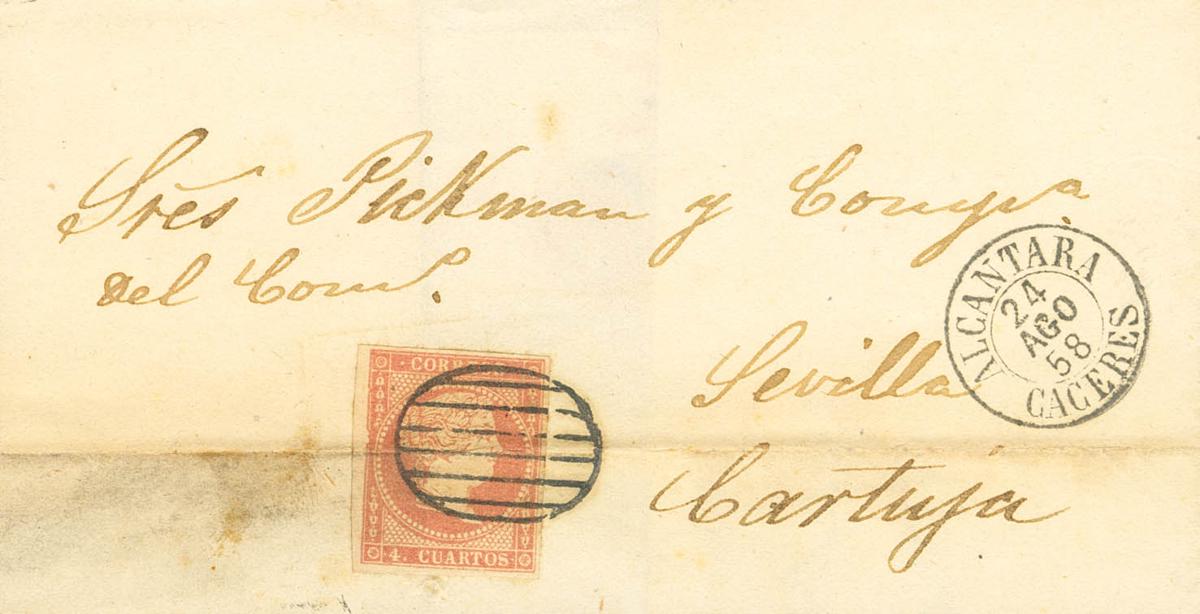 Srẽs Pickman y Compª.
del Comº.
ALCANTARA
24
AGO
58
CACERES
Sevilla
CORREOS
Cartuja
4. CUARTOS